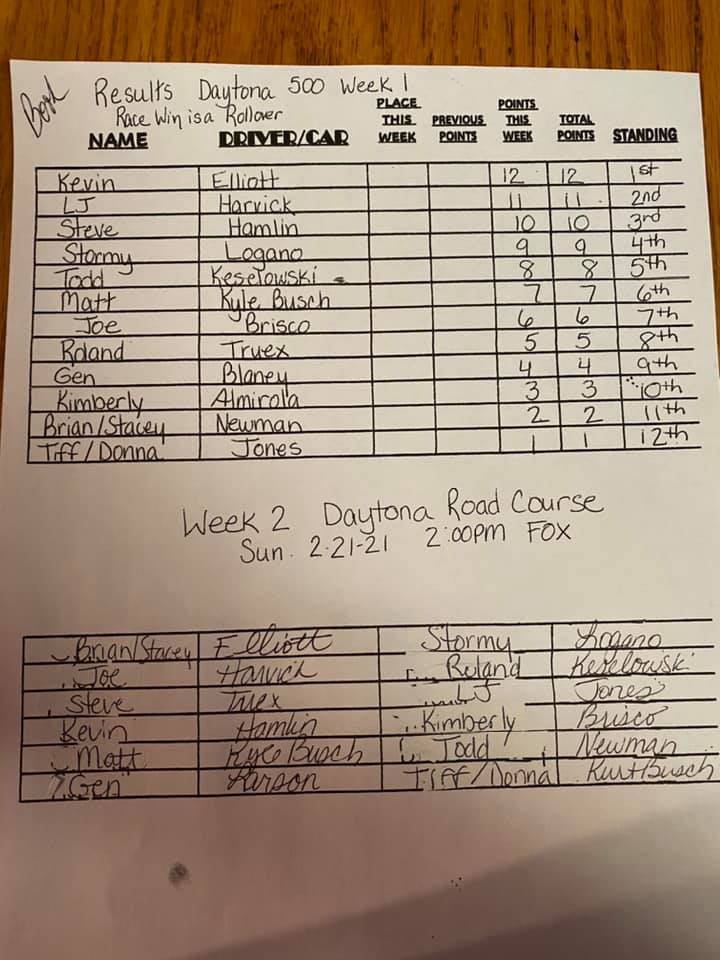 Results Daytona 500 Week 1
Race Win is a Rollover
NAME DRIVER/CAR PLACE THIS WEEK PREVIOUS POINTS POINTS THIS WEEK TOTAL POINTS STANDING
Kevin Elliott 12 12 1st
LJ Harvick 11 11 2nd
Steve Hamlin 10 10 3rd
Stormy Logano 9 9 4th
Todd Keselowski 8 8 5th
Matt Kyle Busch 7 7 6th
Joe Brisco 6 6 7th
Roland Truex 5 5 8th
Gen Blaney 4 4 9th
Kimberly Almirola 3 3 10th
Brian/Stacey Newman 2 2 11th
Tiff/Donna Jones 1 1 12th
Week 2 Daytona Road Course
Sun. 2-21-21 2:00pm FOX
Brian/Stacey Elliott Stormy Logano
Joe Harvick Roland Keselowski
Steve Truex LJ Jones
Kevin Hamlin Kimberly Brisco
Matt Kyle Busch Todd Newman
Gen Larson Tiff/Donna Kurt Busch